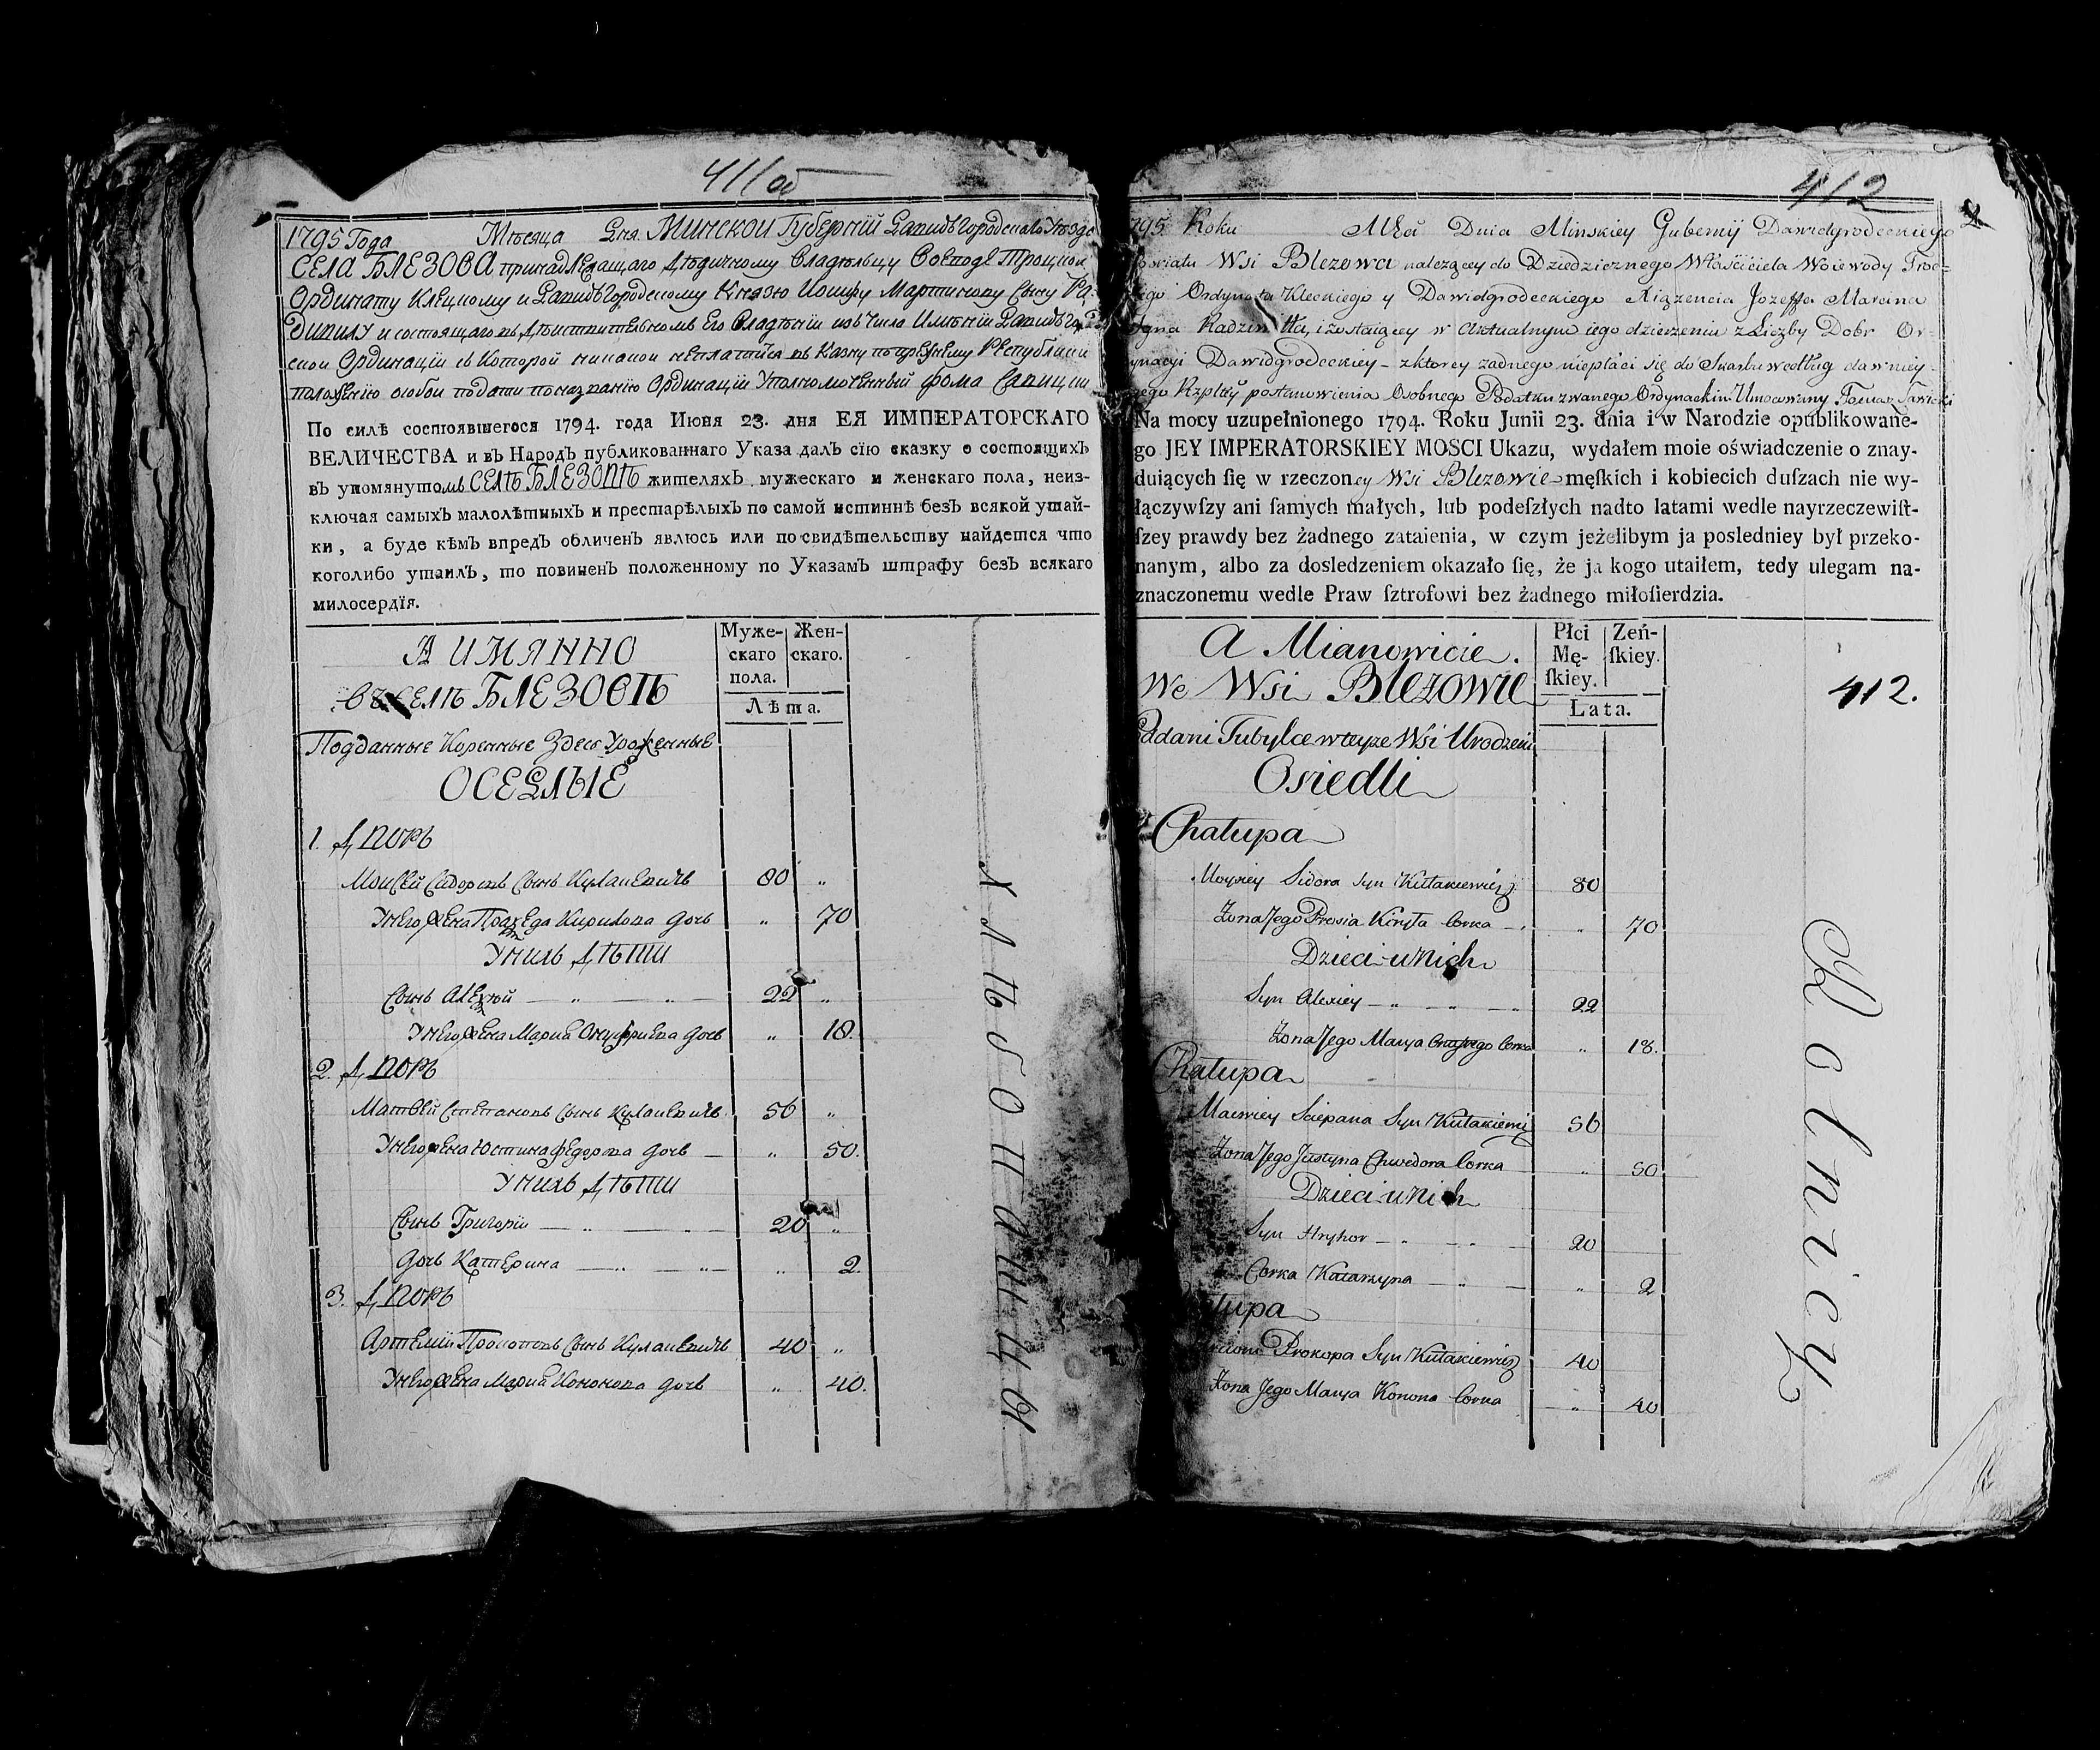 411 об
1795 Года Мѣсяца Дня Минской Губерніи Давидъгородскаго Уѣзда
СЕЛА БЛЕЗОВА принадлежащаго Дѣдичному Владѣльцу Воеводѣ Троцкому
Ординату Клецкому и Давидъгородскому Князю Іосифу Мартинову Сыну Ра-
дивилу и состоящаго въ дѣйствительномъ Его Владѣніи изъ Числа Имѣнїй Давидъгород-
ской Ординаціи съ Которой никакой неплатится въ Казну по прежнему Республики
положенію особой подати по названію Ординаціи Уполномоченный Фома Савицкій
По силѣ состоявшегося 1794. года Июня 23. дня ЕЯ ИМПЕРАТОРСКАГО
ВЕЛИЧЕСТВА и въ Народъ публикованнаго Указа далъ сїю сказку о состоящихъ
въ упомянутомъ СЕЛѢ БЛЕЗОВѢ жителяхъ мужескаго и женскаго пола, неиз-
ключая самыхъ малолѣтныхъ и престарѣлыхъ по самой истиннѣ безъ всякой утай-
ки, а буде кѣмъ впредь обличенъ явлюсь или по свидѣтельству найдется что
коголибо утаилъ, то повиненъ положенному по Указамъ штрафу безъ всякаго
милосердїя.
А ИМЯННО
Муже-
скаго
пола.
Жен-
скаго.
Лѣта.
въ СЕЛѢ БЛЕЗОВѢ
Подданные Коренные Здесь Уроженные
ОСЕДЛЫЕ
1. Дворъ
Моисей Сидоровъ Сынъ Кулакевичъ 80 „
У него жена Праxеда Кирилова дочь „ 70
У нихъ Дѣти
Сынъ Алеxѣй — „ — „ — 22 „
У него жена Мариа Онуфриева дочь „ 18.
2. Дворъ
Матвей Степановъ Сынъ Кулакевичъ 56 „
У него жена Юстина Федорова дочь — „ 50.
У нихъ Дѣти
Сынъ Григорїи — „ — „ — 20 „
Дочь Катерина — „ — „ — „ 2.
3. Дворъ
Артемїи Прокоповъ Сынъ Кулакевичъ 40 „
У него жена Мариа Кононова дочь „ 40.
ХЛѢБОПАШЦЫ
412
2
1795 Roku Mca Dnia Minskiey Gubernij Dawidgrodeckiego
Powiatu Wsi Blezowa należącey do Dziedzicznego Właściciela Woiewody Troc-
kiego Ordynata Kleckiego y Dawidgrodeckiego Xiążencia Jozeffa Marcina
Syna Radziwiłła, i zostaiącey w Aktualnym iego dzierżeniu z Liczby Dobr Or-
dynacyi Dawidgrodeckiey — z ktorey żadnego niepłaci się do Skarbu według dawniey-
szego Rzpltey postanowienia Osobnego Podatku zwanego Ordynackim Umocowany Tomasz Sawicki
Na mocy uzupełnionego 1794. Roku Junii 23. dnia i w Narodzie opublikowane-
go JEY IMPERATORSKIEY MOSCI Ukazu, wydałem moie oświadczenie o znay-
duiących ſię w rzeczoney Wsi Blezowie męſkich i kobiecich duſzach nie wy-
łączywſzy ani ſamych małych, lub podeſzłych nadto latami wedle nayrzeczewiſt-
ſzey prawdy bez żadnego zataienia, w czym jeżelibym ja posledniey był przeko-
nanym, albo za dosledzeniem okazało ſię, że ja kogo utaiłem, tedy ulegam na-
znaczonemu wedle Praw ſztrofowi bez żadnego miłoſierdzia.
A Mianowicie.
Płci
Mę-
ſkiey.
Zeń-
ſkiey.
Lata.
We Wsi Blezowie
412.
Poddani Tubylce w teyże Wsi Urodzeni
Osiedli
Chałupa
Moyżey Sidora Syn Kułakiewicz 80
Żona Jego Prosia Kiryła Corka — „ 70
Dzieci u Nich
Syn Alexiey — „ — „ — 22
Żona Jego Marya Onufrego Corka „ 18.
Chałupa
Maciey Sciepana Syn Kułakiewicz 56
Żona Jego Justyna Chwedora Corka „ 50
Dzieci u Nich
Syn Hryhor — „ — „ — 20
Corka Katarzyna — „ — „ 2
łupa
Prokopa Syn Kułakiewicz 40
Żona Jego Marya Konona Corka „ 40
Rolnicy